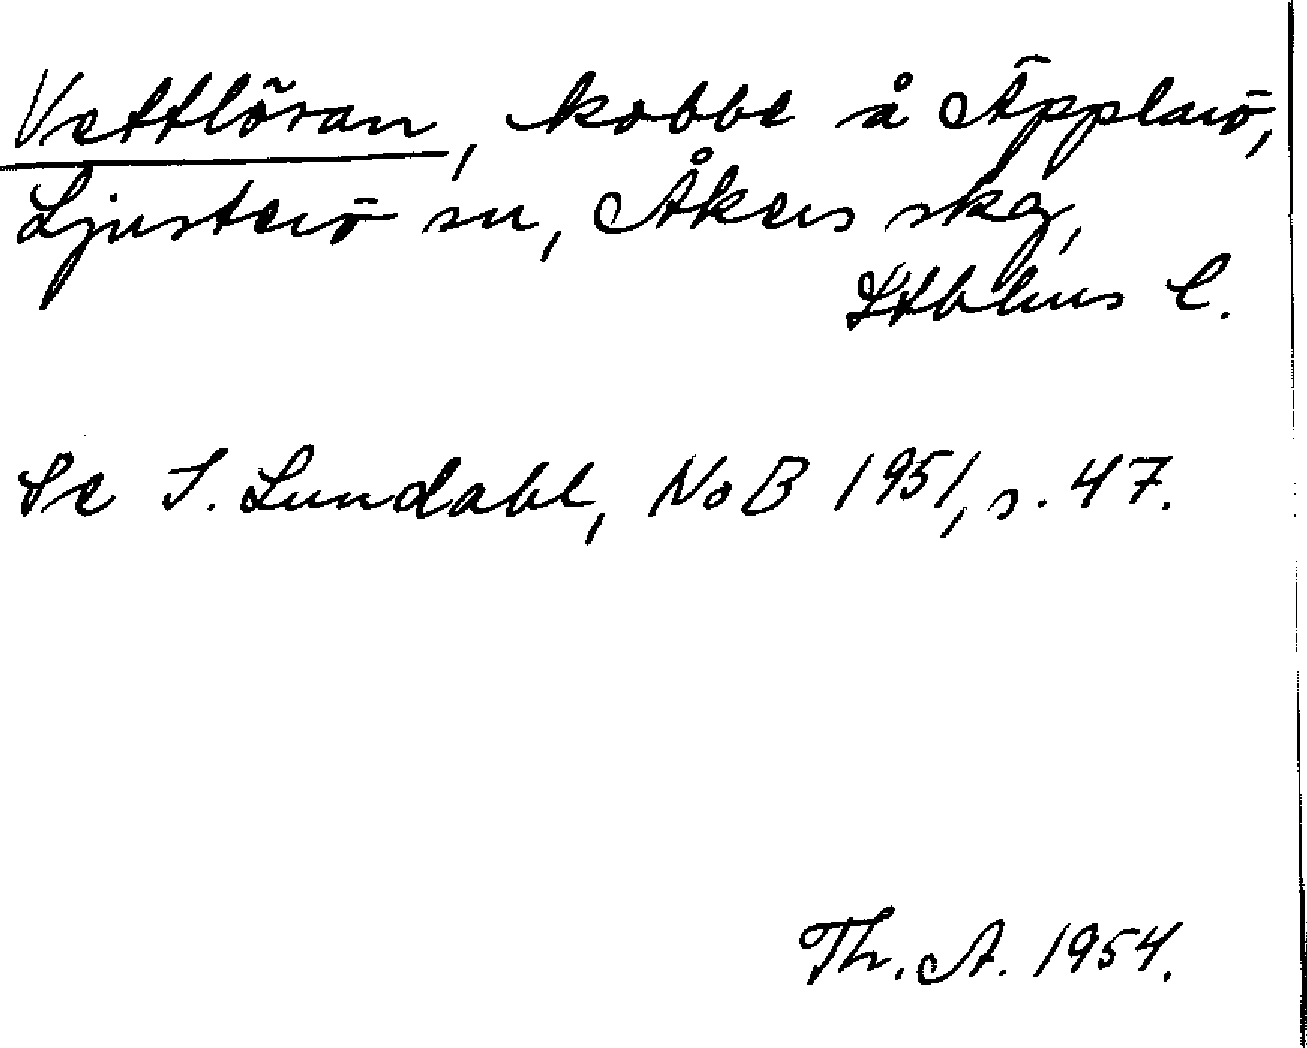 Vettlösan, kobbe å Äpplarö,
Ljusterö sn, Åkers skg,
Sthlms l.
Se I. Lundahl, NoB 1951, s. 47.
Th. A. 1954.